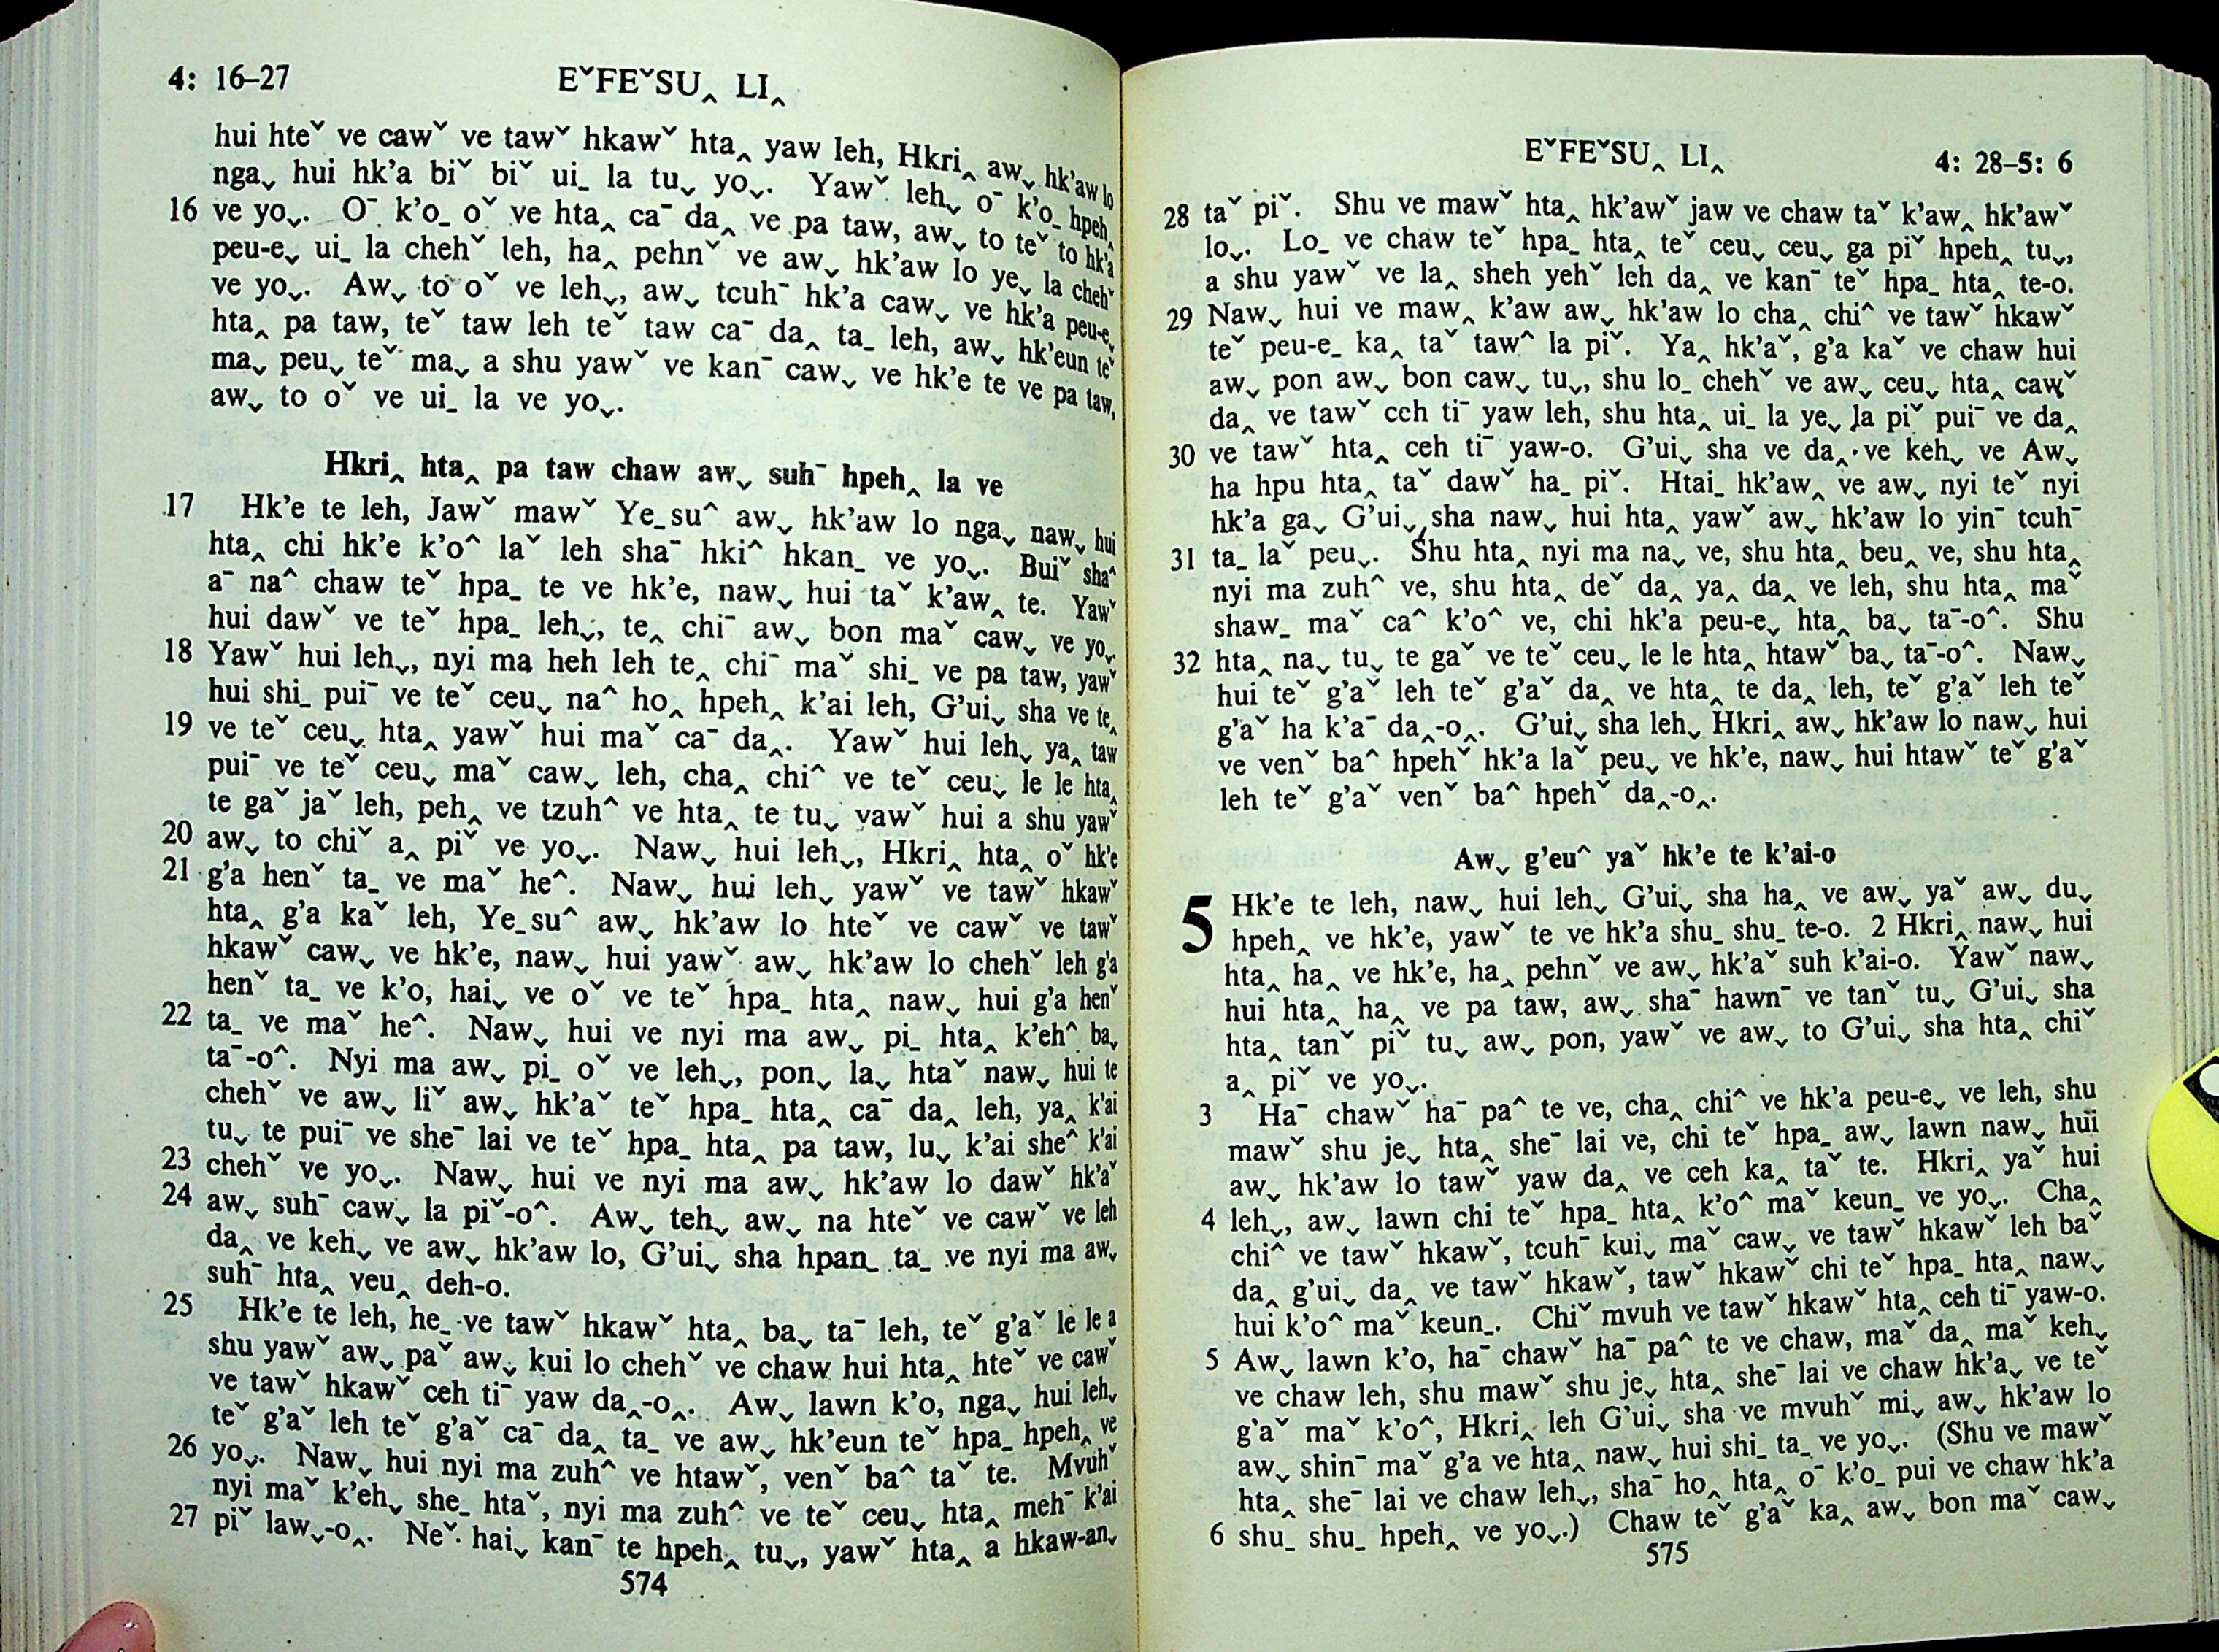 4: 16–27
EˇFEˇSU‸ LI‸
hui hteˇ ve cawˇ ve tawˇ hkawˇ hta‸ yaw leh, Hkri‸ aw⌄ hk’aw lo
nga⌄ hui hk’a biˇ biˇ ui_ la tu⌄ yo⌄. Yawˇ leh⌄ oˉ k’o_ hpeh‸
16 ve yo⌄. Oˉ k’o_ oˇ ve hta‸ caˉ da‸ ve pa taw, aw⌄ to teˇ to hk’a
peu-e⌄ ui_ la chehˇ leh, ha‸ pehnˇ ve aw⌄ hk’aw lo ye⌄ la chehˇ
ve yo⌄. Aw⌄ to oˇ ve leh⌄, aw⌄ tcuhˉ hk’a caw⌄ ve hk’a peu-e⌄
hta‸ pa taw, teˇ taw leh teˇ taw caˉ da‸ ta_ leh, aw⌄ hk’eun teˇ
ma⌄ peu⌄ teˇ ma⌄ a shu yawˇ ve kanˉ caw⌄ ve hk’e te ve pa taw,
aw⌄ to oˇ ve ui_ la ve yo⌄.
Hkri‸ hta‸ pa taw chaw aw⌄ suhˉ hpeh‸ la ve
17 Hk’e te leh, Jawˇ mawˇ Ye_suˆ aw⌄ hk’aw lo nga⌄ naw⌄ hui
hta‸ chi hk’e k’oˆ laˇ leh shaˉ hkiˆ hkan_ ve yo⌄. Buiˇ shaˆ
aˉ naˆ chaw teˇ hpa_ te ve hk’e, naw⌄ hui taˇ k’aw‸ te. Yawˇ
hui dawˇ ve teˇ hpa_ leh⌄, te‸ chiˉ aw⌄ bon maˇ caw⌄ ve yo⌄
18 Yawˇ hui leh⌄, nyi ma heh leh te‸ chiˉ maˇ shi_ ve pa taw, yawˇ
hui shi_ puiˉ ve teˇ ceu⌄ naˆ ho‸ hpeh‸ k’ai leh, G’ui⌄ sha ve te‸
19 ve teˇ ceu⌄ hta‸ yawˇ hui maˇ caˉ da‸. Yawˇ hui leh⌄ ya‸ taw
puiˉ ve teˇ ceu⌄ maˇ caw⌄ leh, cha‸ chiˆ ve teˇ ceu⌄ le le hta‸
te gaˇ jaˇ leh, peh‸ ve tzuhˆ ve hta‸ te tu⌄ yawˇ hui a shu yawˇ
20 aw⌄ to chiˇ a‸ piˇ ve yo⌄. Naw⌄ hui leh⌄, Hkri‸ hta‸ oˇ hk’e
21 g’a henˇ ta_ ve maˇ heˆ. Naw⌄ hui leh⌄ yawˇ ve tawˇ hkawˇ
hta‸ g’a kaˇ leh, Ye_suˆ aw⌄ hk’aw lo hteˇ ve cawˇ ve tawˇ
hkawˇ caw⌄ ve hk’e, naw⌄ hui yawˇ aw⌄ hk’aw lo chehˇ leh g’a
henˇ ta_ ve k’o, hai⌄ ve oˇ ve teˇ hpa_ hta‸ naw⌄ hui g’a henˇ
22 ta_ ve maˇ heˆ. Naw⌄ hui ve nyi ma aw⌄ pi_ hta‸ k’ehˆ ba⌄
taˉ-oˆ. Nyi ma aw⌄ pi_ oˇ ve leh⌄, pon⌄ la⌄ htaˇ naw⌄ hui te
chehˇ ve aw⌄ liˇ aw⌄ hk’aˇ teˇ hpa_ hta‸ caˉ da‸ leh, ya‸ k’ai
tu⌄ te puiˉ ve sheˉ lai ve teˇ hpa_ hta‸ pa taw, lu⌄ k’ai sheˆ k’ai
23 chehˇ ve yo⌄. Naw⌄ hui ve nyi ma aw⌄ hk’aw lo dawˇ hk’aˇ
24 aw⌄ suhˉ caw⌄ la piˇ-oˆ. Aw⌄ teh⌄ aw⌄ na hteˇ ve cawˇ ve leh
da‸ ve keh⌄ ve aw⌄ hk’aw lo, G’ui⌄ sha hpan_ ta_ ve nyi ma aw⌄
suhˉ hta‸ veu‸ deh-o.
25 Hk’e te leh, he_ ve tawˇ hkawˇ hta‸ ba⌄ taˉ leh, teˇ g’aˇ le le a
shu yawˇ aw⌄ paˇ aw⌄ kui lo chehˇ ve chaw hui hta‸ hteˇ ve cawˇ
ve tawˇ hkawˇ ceh tiˉ yaw da‸-o‸. Aw⌄ lawn k’o, nga⌄ hui leh⌄
teˇ g’aˇ leh teˇ g’aˇ caˉ da‸ ta_ ve aw⌄ hk’eun teˇ hpa_ hpeh‸ ve
26 yo⌄. Naw⌄ hui nyi ma zuhˆ ve htawˇ, venˇ baˆ taˇ te. Mvuhˇ
nyi maˇ k’eh⌄ she_ htaˇ, nyi ma zuhˆ ve teˇ ceu⌄ hta‸ mehˉ k’ai
27 piˇ law⌄-o‸. Neˇ hai⌄ kanˉ te hpeh‸ tu⌄, yawˇ hta‸ a hkaw-an⌄
574
EˇFEˇSU‸ LI‸
4: 28–5: 6
28 taˇ piˇ. Shu ve mawˇ hta‸ hk’awˇ jaw ve chaw taˇ k’aw‸ hk’awˇ
lo⌄. Lo_ ve chaw teˇ hpa_ hta‸ teˇ ceu⌄ ceu⌄ ga piˇ hpeh‸ tu⌄,
a shu yawˇ ve la‸ sheh yehˇ leh da‸ ve kanˉ teˇ hpa_ hta‸ te-o.
29 Naw⌄ hui ve maw‸ k’aw aw⌄ hk’aw lo cha‸ chiˆ ve tawˇ hkawˇ
teˇ peu-e_ ka‸ taˇ tawˆ la piˇ. Ya‸ hk’aˇ, g’a kaˇ ve chaw hui
aw⌄ pon aw⌄ bon caw⌄ tu⌄, shu lo_ chehˇ ve aw⌄ ceu⌄ hta‸ cawˇ
da‸ ve tawˇ ceh tiˉ yaw leh, shu hta‸ ui_ la ye⌄ la piˇ puiˉ ve da‸
30 ve tawˇ hta‸ ceh tiˉ yaw-o. G’ui⌄ sha ve da‸ ve keh⌄ ve Aw⌄
ha hpu hta‸ taˇ dawˇ ha_ piˇ. Htai_ hk’aw‸ ve aw⌄ nyi teˇ nyi
hk’a ga⌄ G’ui⌄ sha naw⌄ hui hta‸ yawˇ aw⌄ hk’aw lo yinˉ tcuhˉ
31 ta_ laˇ peu⌄. Shu hta‸ nyi ma na⌄ ve, shu hta‸ beu‸ ve, shu hta‸
nyi ma zuhˆ ve, shu hta‸ deˇ da‸ ya‸ da‸ ve leh, shu hta‸ maˇ
shaw_ maˇ caˆ k’oˆ ve, chi hk’a peu-e⌄ hta‸ ba⌄ taˉ-oˆ. Shu
32 hta‸ na⌄ tu⌄ te gaˇ ve teˇ ceu⌄ le le hta‸ htawˇ ba⌄ taˉ-oˆ. Naw⌄
hui teˇ g’aˇ leh teˇ g’aˇ da‸ ve hta‸ te da‸ leh, teˇ g’aˇ leh teˇ
g’aˇ ha k’aˉ da‸-o‸. G’ui⌄ sha leh⌄ Hkri‸ aw⌄ hk’aw lo naw⌄ hui
ve venˇ baˆ hpehˇ hk’a laˇ peu⌄ ve hk’e, naw⌄ hui htawˇ teˇ g’aˇ
leh teˇ g’aˇ venˇ baˆ hpehˇ da‸-o‸.
Aw⌄ g’euˆ yaˇ hk’e te k’ai-o
5 Hk’e te leh, naw⌄ hui leh⌄ G’ui⌄ sha ha‸ ve aw⌄ yaˇ aw⌄ du⌄
hpeh‸ ve hk’e, yawˇ te ve hk’a shu_ shu_ te-o. 2 Hkri‸ naw⌄ hui
hta‸ ha‸ ve hk’e, ha‸ pehnˇ ve aw⌄ hk’aˇ suh k’ai-o. Yawˇ naw⌄
hui hta‸ ha‸ ve pa taw, aw⌄ shaˉ hawnˉ ve tanˇ tu⌄ G’ui⌄ sha
hta‸ tanˇ piˇ tu⌄ aw⌄ pon, yawˇ ve aw⌄ to G’ui⌄ sha hta‸ chiˇ
a‸ piˇ ve yo⌄.
3 Haˉ chawˇ haˉ paˆ te ve, cha‸ chiˆ ve hk’a peu-e⌄ ve leh, shu
mawˇ shu je⌄ hta‸ sheˉ lai ve, chi teˇ hpa_ aw⌄ lawn naw⌄ hui
aw⌄ hk’aw lo tawˇ yaw da‸ ve ceh ka‸ taˇ te. Hkri‸ yaˇ hui
4 leh⌄, aw⌄ lawn chi teˇ hpa_ hta‸ k’oˆ maˇ keun_ ve yo⌄. Cha‸
chiˆ ve tawˇ hkawˇ, tcuhˉ kui⌄ maˇ caw⌄ ve tawˇ hkawˇ leh baˇ
da‸ g’ui⌄ da‸ ve tawˇ hkawˇ, tawˇ hkawˇ chi teˇ hpa_ hta‸ naw⌄
hui k’oˆ maˇ keun_. Chiˇ mvuh ve tawˇ hkawˇ hta‸ ceh tiˉ yaw-o.
5 Aw⌄ lawn k’o, haˉ chawˇ haˉ paˆ te ve chaw, maˇ da‸ maˇ keh⌄
ve chaw leh, shu mawˇ shu je⌄ hta‸ sheˉ lai ve chaw hk’a⌄ ve teˇ
g’aˇ maˇ k’oˆ, Hkri‸ leh G’ui⌄ sha ve mvuhˇ mi⌄ aw⌄ hk’aw lo
aw⌄ shinˉ maˇ g’a ve hta‸ naw⌄ hui shi_ ta_ ve yo⌄. (Shu ve mawˇ
hta‸ sheˉ lai ve chaw leh⌄, shaˉ ho‸ hta‸ oˉ k’o_ pui ve chaw hk’a
6 shu_ shu_ hpeh‸ ve yo⌄.) Chaw teˇ g’aˇ ka‸ aw⌄ bon maˇ caw⌄
575